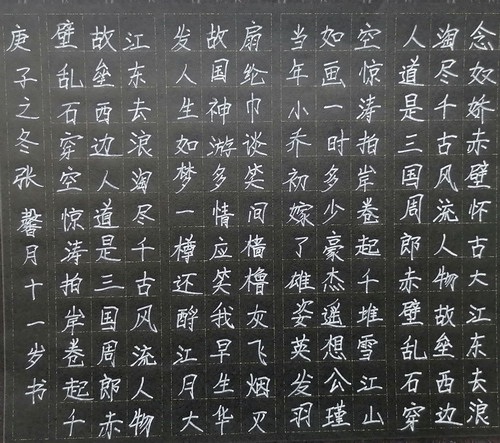 念奴娇赤壁怀古大江东去浪
淘尽千古风流人物故垒西边
人道是三国周郎赤壁乱石穿
空惊涛拍岸卷起千堆雪江山
如画一时多少豪杰遥想公瑾
当年小乔初嫁了雄姿英发羽
扇纶巾谈笑间樯橹灰飞烟灭
故国神游多情应笑我早生华
发人生如梦一樽还酹江月大
江东去浪淘尽千古风流人物
故垒西边人道是三国周郎赤
壁乱石穿空惊涛拍岸卷起千
庚子之冬张馨月十一岁书